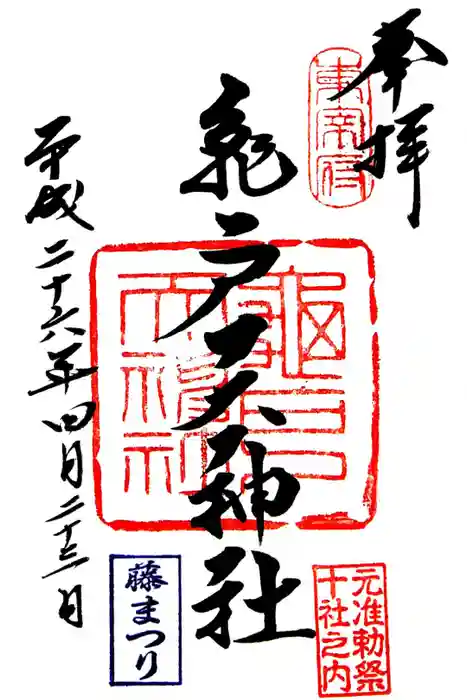 奉拝
東宰府
亀戸天神社
平成二十六年四月二十三日
元准勅祭
十社之内
藤まつり